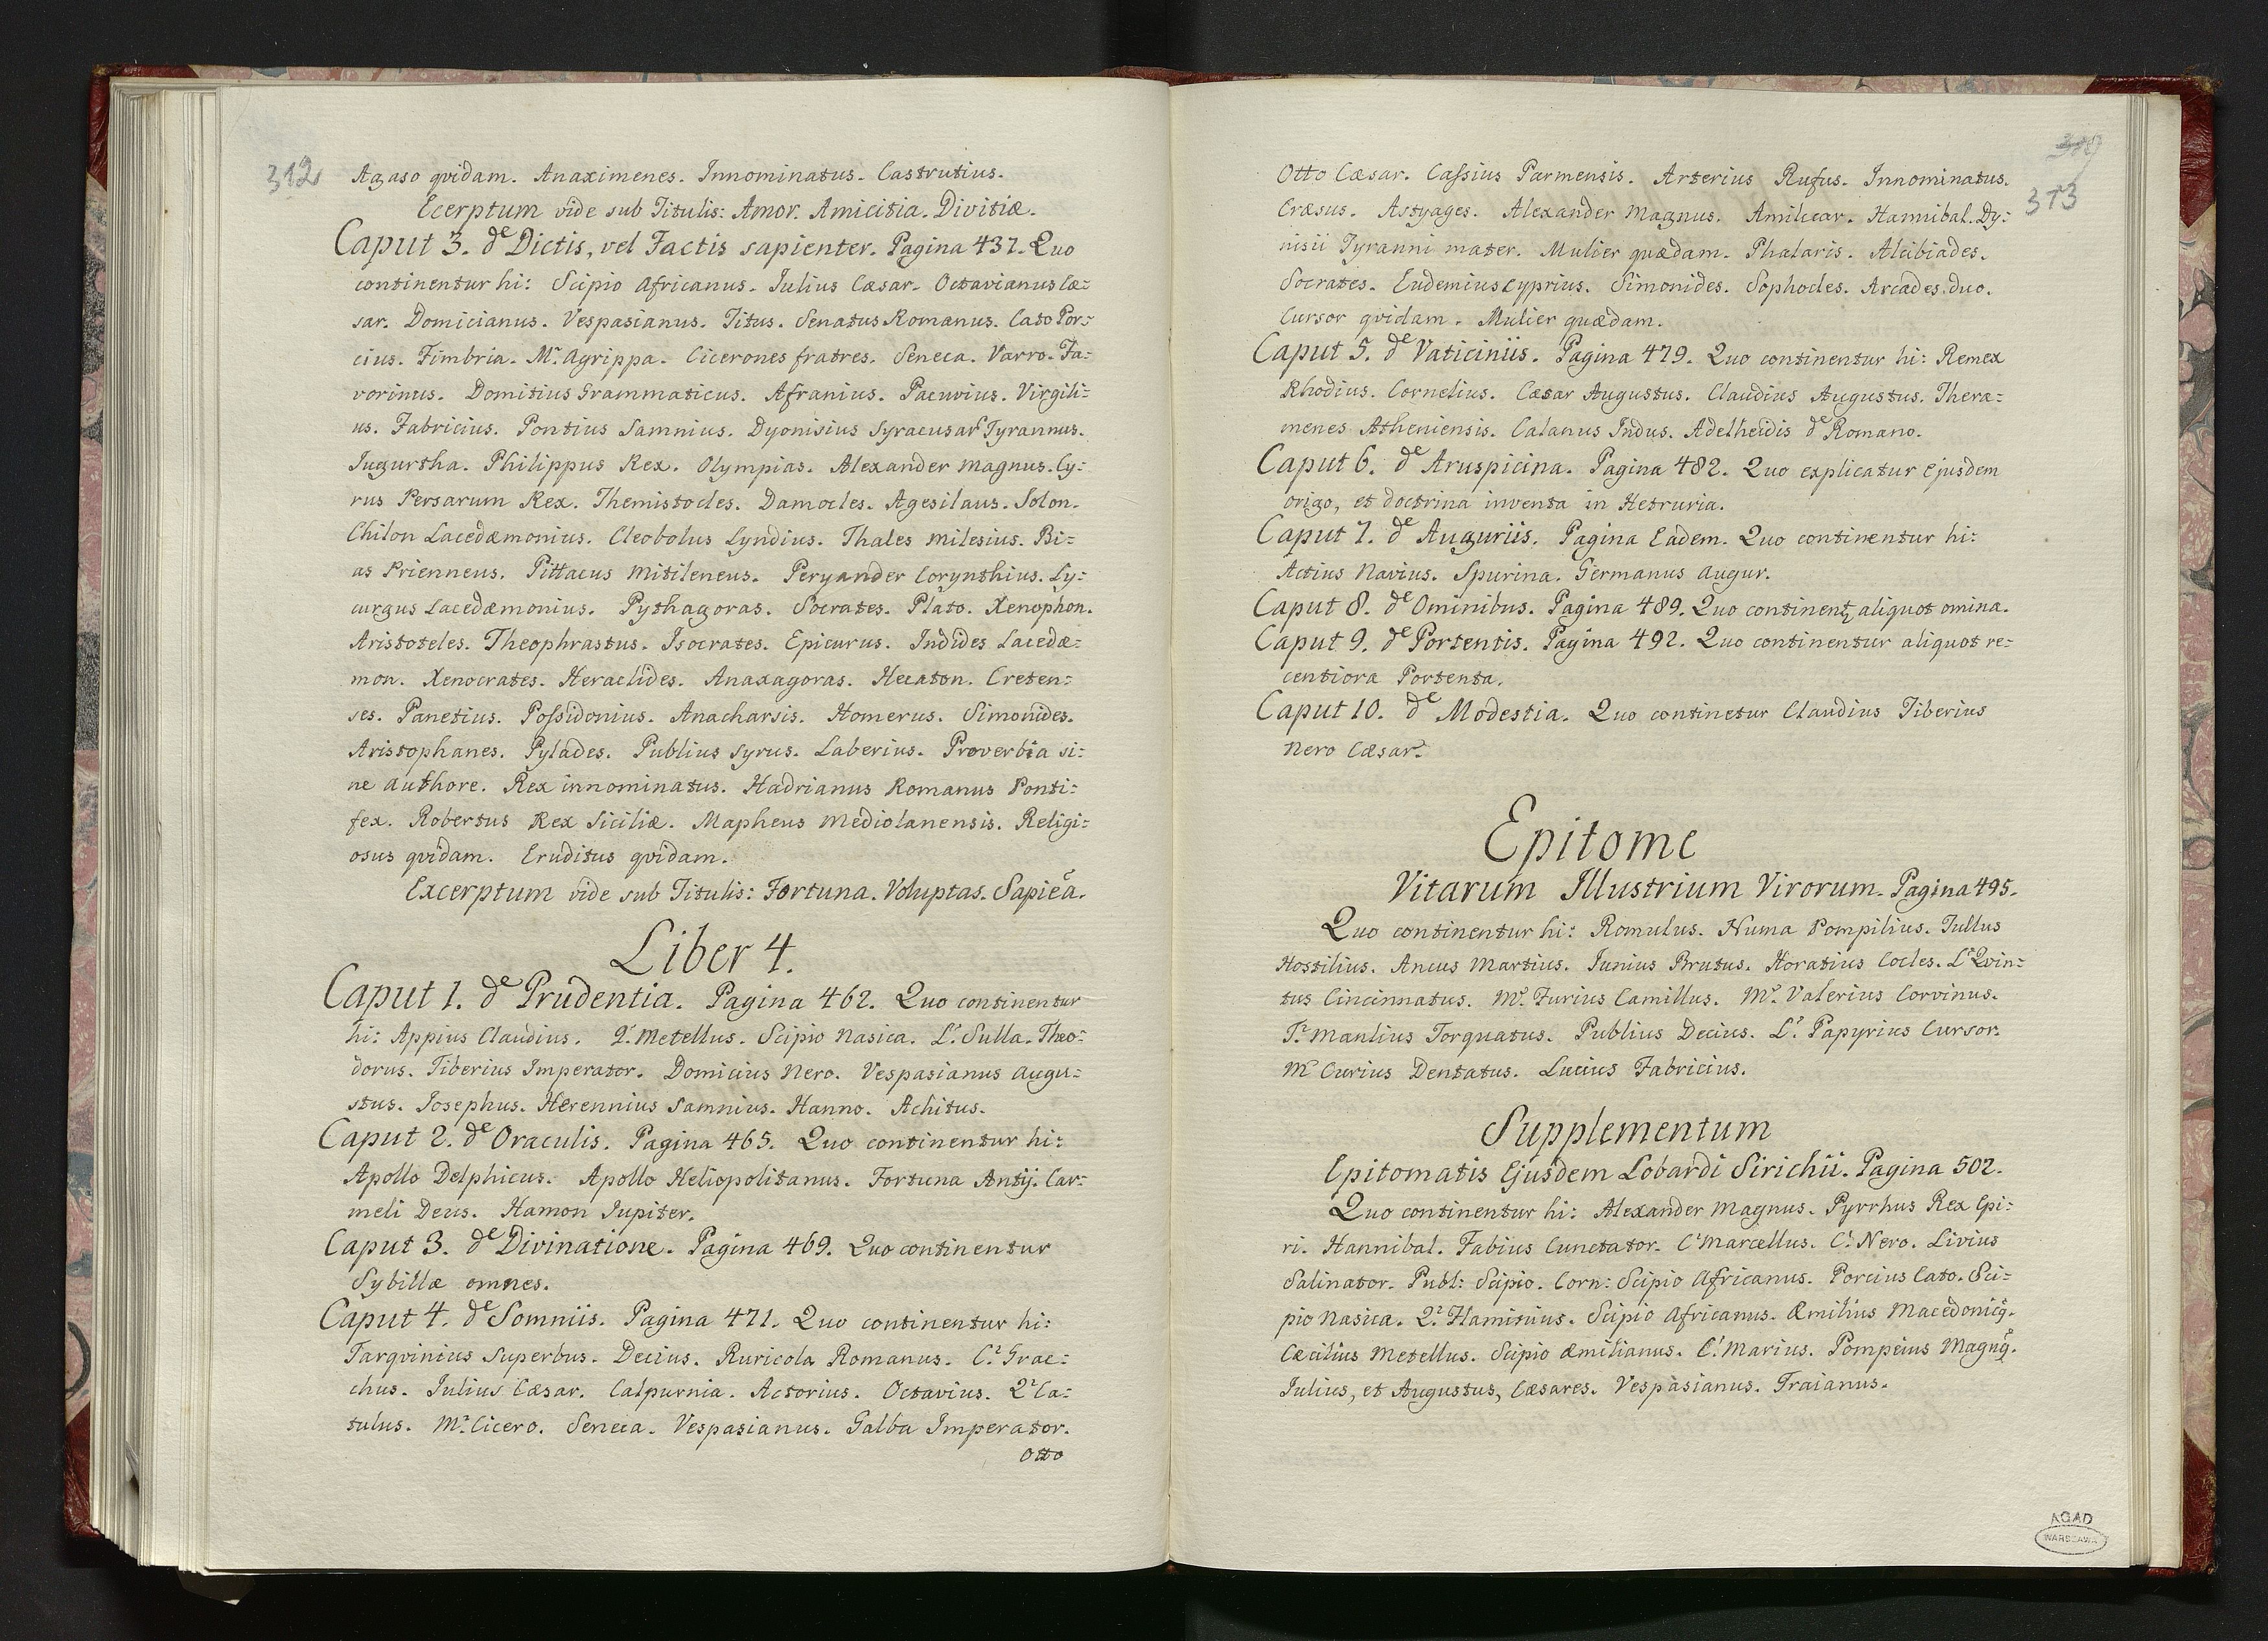 312
Agaso qvidam. Anaximenes. Innominatus. Castrutius.
Ecerptum vide sub Titulis: Amor. Amicitia. Divitiæ.
Caput 3. de Dictis, vel Factis sapienter. Pagina 437. Quo
continentur hi: Scipio Africanus. Iulius Cæsar. Octavianus Cæ:
sar. Domicianus. Vespasianus. Titus. Senatus Romanus. Cato Por:
cius. Fimbria. Mr. Agrippa. Cicerones fratres. Seneca. Varro. Fa:
vorinus. Domitius Grammaticus. Afranius. Pacuvius. Virgili:
us. Fabricius. Pontius Samnius. Dyonisius Syracusar Tyrannus.
Iugurtha. Philippus Rex. Olympias. Alexander Magnus. Cy:
rus Persarum Rex. Themistocles. Damocles. Agesilaus. Solon.
Chilon Lacedæmonius. Cleobolus Lyndius. Thales Milesius. Bi:
as Prienneus. Pittacus Mitileneus. Peryander Corynthius. Ly:
curgus Lacedæmonius. Pythagoras. Socrates. Plato. Xenophon.
Aristoteles. Theophrastus. Isocrates. Epicurus. Indides Lacedæ:
mon. Xenocrates. Heraclides. Anaxagoras. Hecaton. Creten:
ses. Panetius. Possidonius. Anacharsis. Homerus. Simonides.
Aristophanes. Pylades. Publius Syrus. Laberius. Proverbia si:
ne Authore. Rex innominatus. Hadrianus Romanus Ponti:
fex. Robertus Rex Siciliæ. Mapheus Mediolanensis. Religi:
osus qvidam. Eruditus qvidam.
Excerptum vide sub Titulis: Fortuna. Voluptas. Sapiẽa.
Liber 4.
Caput 1. de Prudentia. Pagina 462. Quo continentur
hi: Appius Claudius. Q. Metellus. Scipio Nasica. Lr. Sulla. Theo:
dorus. Tiberius Imperator. Domicius Nero. Vespasianus Augu:
stus. Iosephus. Herennius Samnius. Hanno. Achitus.
Caput 2. de Oraculis. Pagina 465. Quo continentur hi:
Apollo Delphicus. Apollo Heliopolitanus. Fortuna Antij. Car:
meli Deus. Hamon Iupiter.
Caput 3. de Divinatione. Pagina 469. Quo continentur
Sybillæ omnes.
Caput 4. de Somniis. Pagina 471. Quo continentur hi:
Tarqvinius Superbus. Decius. Ruricola Romanus. Cr. Grac:
chus. Iulius Cæsar. Calpurnia. Actorius. Octavius. Qr Ca:
tulus. Mr. Cicero. Seneca. Vespasianus. Galba Imperator.
Otto
313
Otto Cæsar. Cassius Parmensis. Arterius Rufus. Innominatus.
Cræsus. Astyages. Alexander Magnus. Amilcar. Hannibal. Dy:
nisii Tyranni mater. Mulier quædam. Phalaris. Alcibiades.
Socrates. Eudemius Cyprius. Simonides. Sophocles. Arcades duo.
Cursor qvidam. Mulier quædam.
Caput 5. de Vaticiniis. Pagina 479. Quo continentur hi: Remex
Rhodius. Cornelius. Cæsar Augustus. Claudius Augustus. Thera:
menes Atheniensis. Calanus Indus. Adelheidis de Romano.
Caput 6. de Aruspicina. Pagina 482. Quo explicatur ejusdem
origo, et doctrina inventa in Hetruria.
Caput 7. de Auguriis. Pagina Eadem. Quo continentur hi:
Actius Navius. Spurina. Germanus Augur.
Caput 8. de Ominibus. Pagina 489. Quo continent, aliquot omina.
Caput 9. de Portentis. Pagina 492. Quo continentur aliquot re:
centiora Portenta.
Caput 10. de Modestia. Quo continetur Claudius Tiberius
Nero Cæsar.
Epitome
Vitarum Illustrium Virorum. Pagina 495.
Quo continentur hi: Romulus. Numa Pompilius. Tullus
Hostilius. Ancus Martius. Iunius Brutus. Horatius Cocles. Lr Qvin:
tus Cincinnatus. Mr. Furius Camillus. Mr. Valerius Corvinus.
Tr Manlius Torquatus. Publius Decius. Lr. Papyrius Cursor.
Mr Curius Dentatus. Lucius Fabricius.
Supplementum
Epitomatis Ejusdem Lobardi Sirichii. Pagina 502.
Quo continentur hi: Alexander Magnus. Pyrrhus Rex Epi:
ri. Hannibal. Fabius Cunctator. Cr Marcellus. Cr. Nero. Livius
Salinator. Publ: Scipio. Corn: Scipio Africanus. Porcius Cato. Sci:
pio Nasica. Qr. Flaminius. Scipio Africanus. Æmilius Macedonicq.
Cæcilius Metellus. Scipio Æmilianus. Cr. Marius. Pompeius Magnq.
Iulius, et Augustus, Cæsares. Vespasianus. Traianus.
AGAD
WARSZAWA